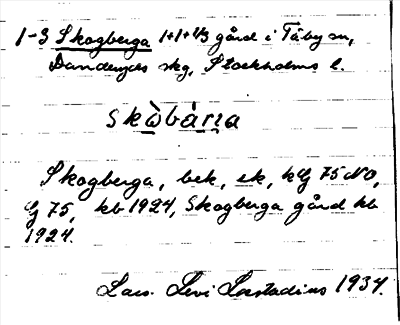 1-3 Skogberga 1+1+1/3 gård i Täby sn,
Danderyds skg, Stockholms l.
skòbàrıa
Skogberga, bek, ek, kg 75 NO,
Lg 75, kb 1924, Skogberga gård kb
1924.
Lars Levi Læstadius 1934.